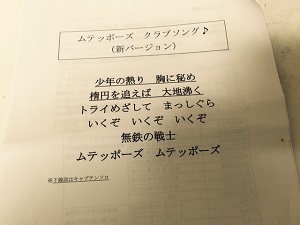 ムテッポーズ クラブソング♪
（新バージョン）
少年の熱り 胸に秘め
楕円を追えば 大地湧く
トライめざして まっしぐら
いくぞ いくぞ いくぞ
無鉄の戦士
ムテッポーズ ムテッポーズ
※下線部はキャプテンソロ